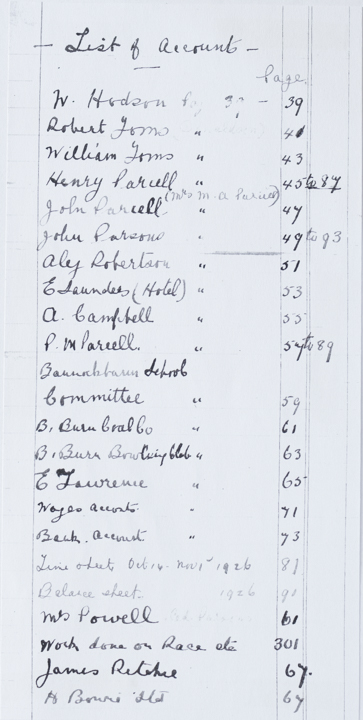 - List of Accounts -
Page.
W. Hodson Pg 39 - 39
Robert Toms " 41
William Toms " 43
Henry Parcell " 45 to 87
(Mrs M. A. Parcell)
John Parcell 47
John Parsons " 49 to 93
Alex Robertson " 51
E Saunders (Hotel) " 53
A. Campbell " 55
P. M Parcell. " 57 to 89
Bannockburn School
Committee " 59
B. Burn Coal Co " 61
B. Burn Bowling Club " 63
E Lawrence " 65
Wages accounts " 71
Bank. Account " 73
Time sheet Oct 14 - Nov 1st 1926 81
Balance sheet 1926 91
Mrs Powell 61
Work done on Race etc 301
James Ritchie 67.
H Bowie 67